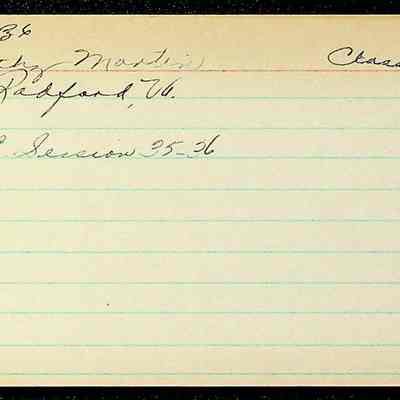 36
thy Martin Class
Radford, Va.
Session 35-36